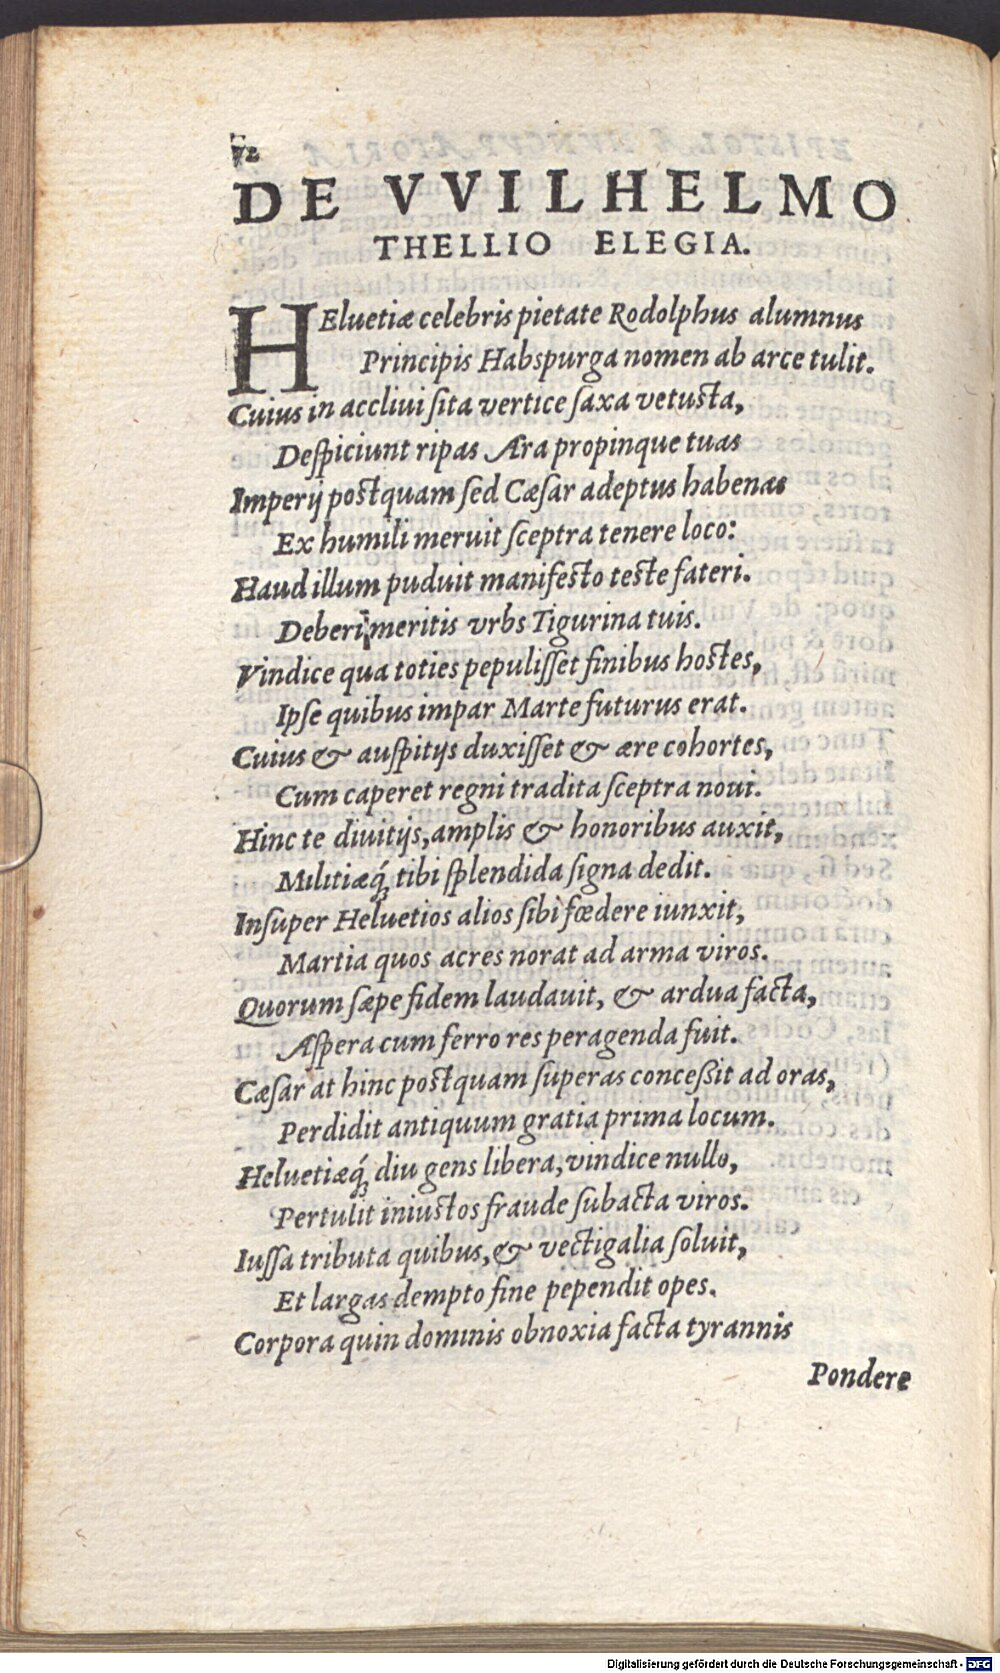 72
DE VVILHELMO
THELLIO ELEGIA.
HEluetiæ celebris pietate Rodolphus alumnus
Principis Habspurga nomen ab arce tulit.
Cuius in accliui ſita vertice ſaxa vetuſta,
Deſpiciunt ripas Æra propinque tuas
Imperij poſtquam ſed Cæſar adeptus habenas
Ex humili meruit ſceptra tenere loco:
Haud illum puduit manifeſto teſte fateri.
Deberi meritis vrbs Tigurina tuis.
Vindice qua toties pepuliſſet finibus hoſtes,
Ipſe quibus impar Marte futurus erat.
Cuius & auſpitijs duxiſſet & ære cohortes,
Cum caperet regni tradita ſceptra noui.
Hinc te diuitijs, amplis & honoribus auxit,
Militiæq́; tibi ſplendida ſigna dedit.
Inſuper Heluetios alios ſibi fœdere iunxit,
Martia quos acres norat ad arma viros.
Quorum ſæpe fidem laudauit, & ardua facta,
Aſpera cum ferro res peragenda fuit.
Cæſar at hinc poſtquam ſuperas conceßit ad oras,
Perdidit antiquum gratia prima locum.
Heluetiæq́; diu gens libera, vindice nullo,
Pertulit iniuſtos fraude ſubacta viros.
Iuſſa tributa quibus, & vectigalia ſoluit,
Et largas dempto fine pependit opes.
Corpora quin dominis obnoxia facta tyrannis
Pondere
Digitalisierung gefördert durch die Deutsche Forschungsgemeinschaft - DFG